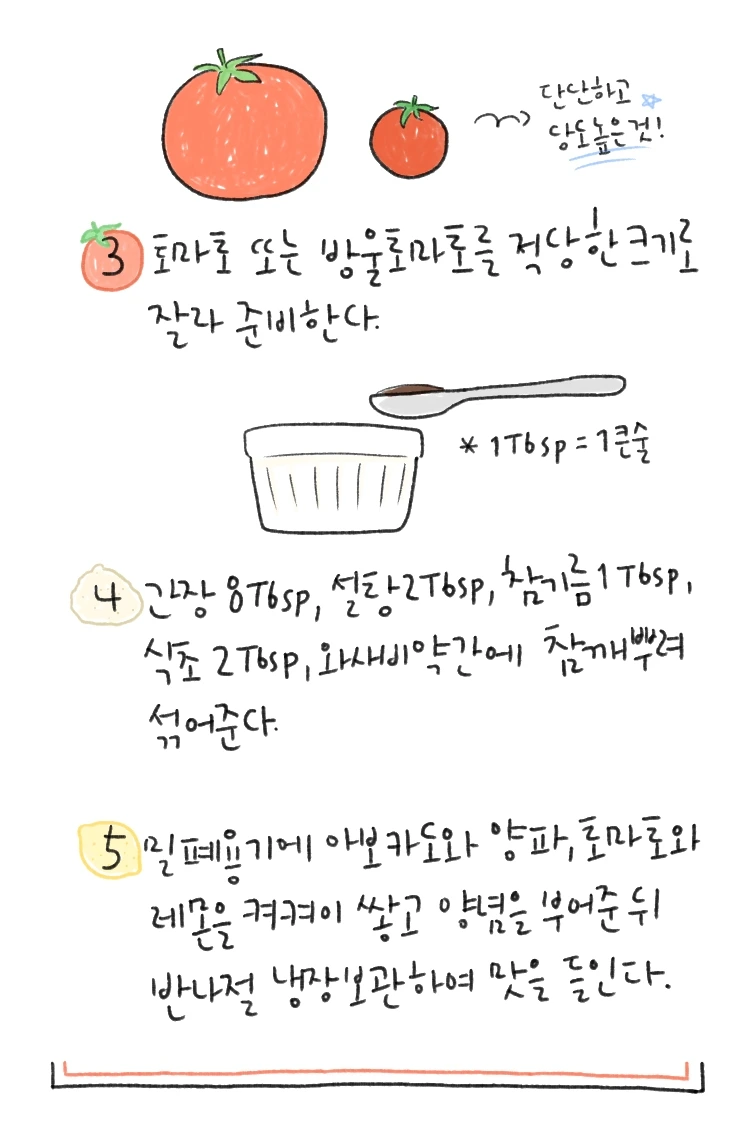 단단하고
당도높은것!
3 토마토 또는 방울토마토를 적당한크기로
잘라 준비한다.
* 1Tbsp = 1큰술
4 간장 8Tbsp, 설탕2Tbsp, 참기름1Tbsp,
식초 2Tbsp, 와새비약간에 참깨뿌려
섞어준다.
5 밀폐용기에 아보카도와 양파,토마토와
레몬을 켜켜이 쌓고 양념을 부어준 뒤
반나절 냉장보관하여 맛을 들인다.